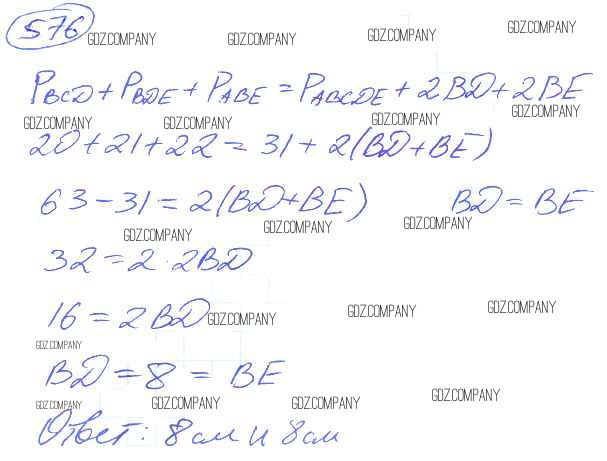 576
GDZ.COMPANY GDZ.COMPANY GDZ.COMPANY GDZ.COMPANY
P_BCD + P_BDE + P_ABE = P_ABCDE + 2BD + 2BE
GDZ.COMPANY GDZ.COMPANY GDZ.COMPANY GDZ.COMPANY
20 + 21 + 22 = 31 + 2(BD + BE)
63 - 31 = 2(BD + BE) BD = BE
GDZ.COMPANY GDZ.COMPANY GDZ.COMPANY
32 = 2 · 2BD
16 = 2BD
GDZ.COMPANY GDZ.COMPANY GDZ.COMPANY
GDZ.COMPANY
BD = 8 = BE
GDZ.COMPANY GDZ.COMPANY GDZ.COMPANY GDZ.COMPANY
Ответ: 8 см и 8 см